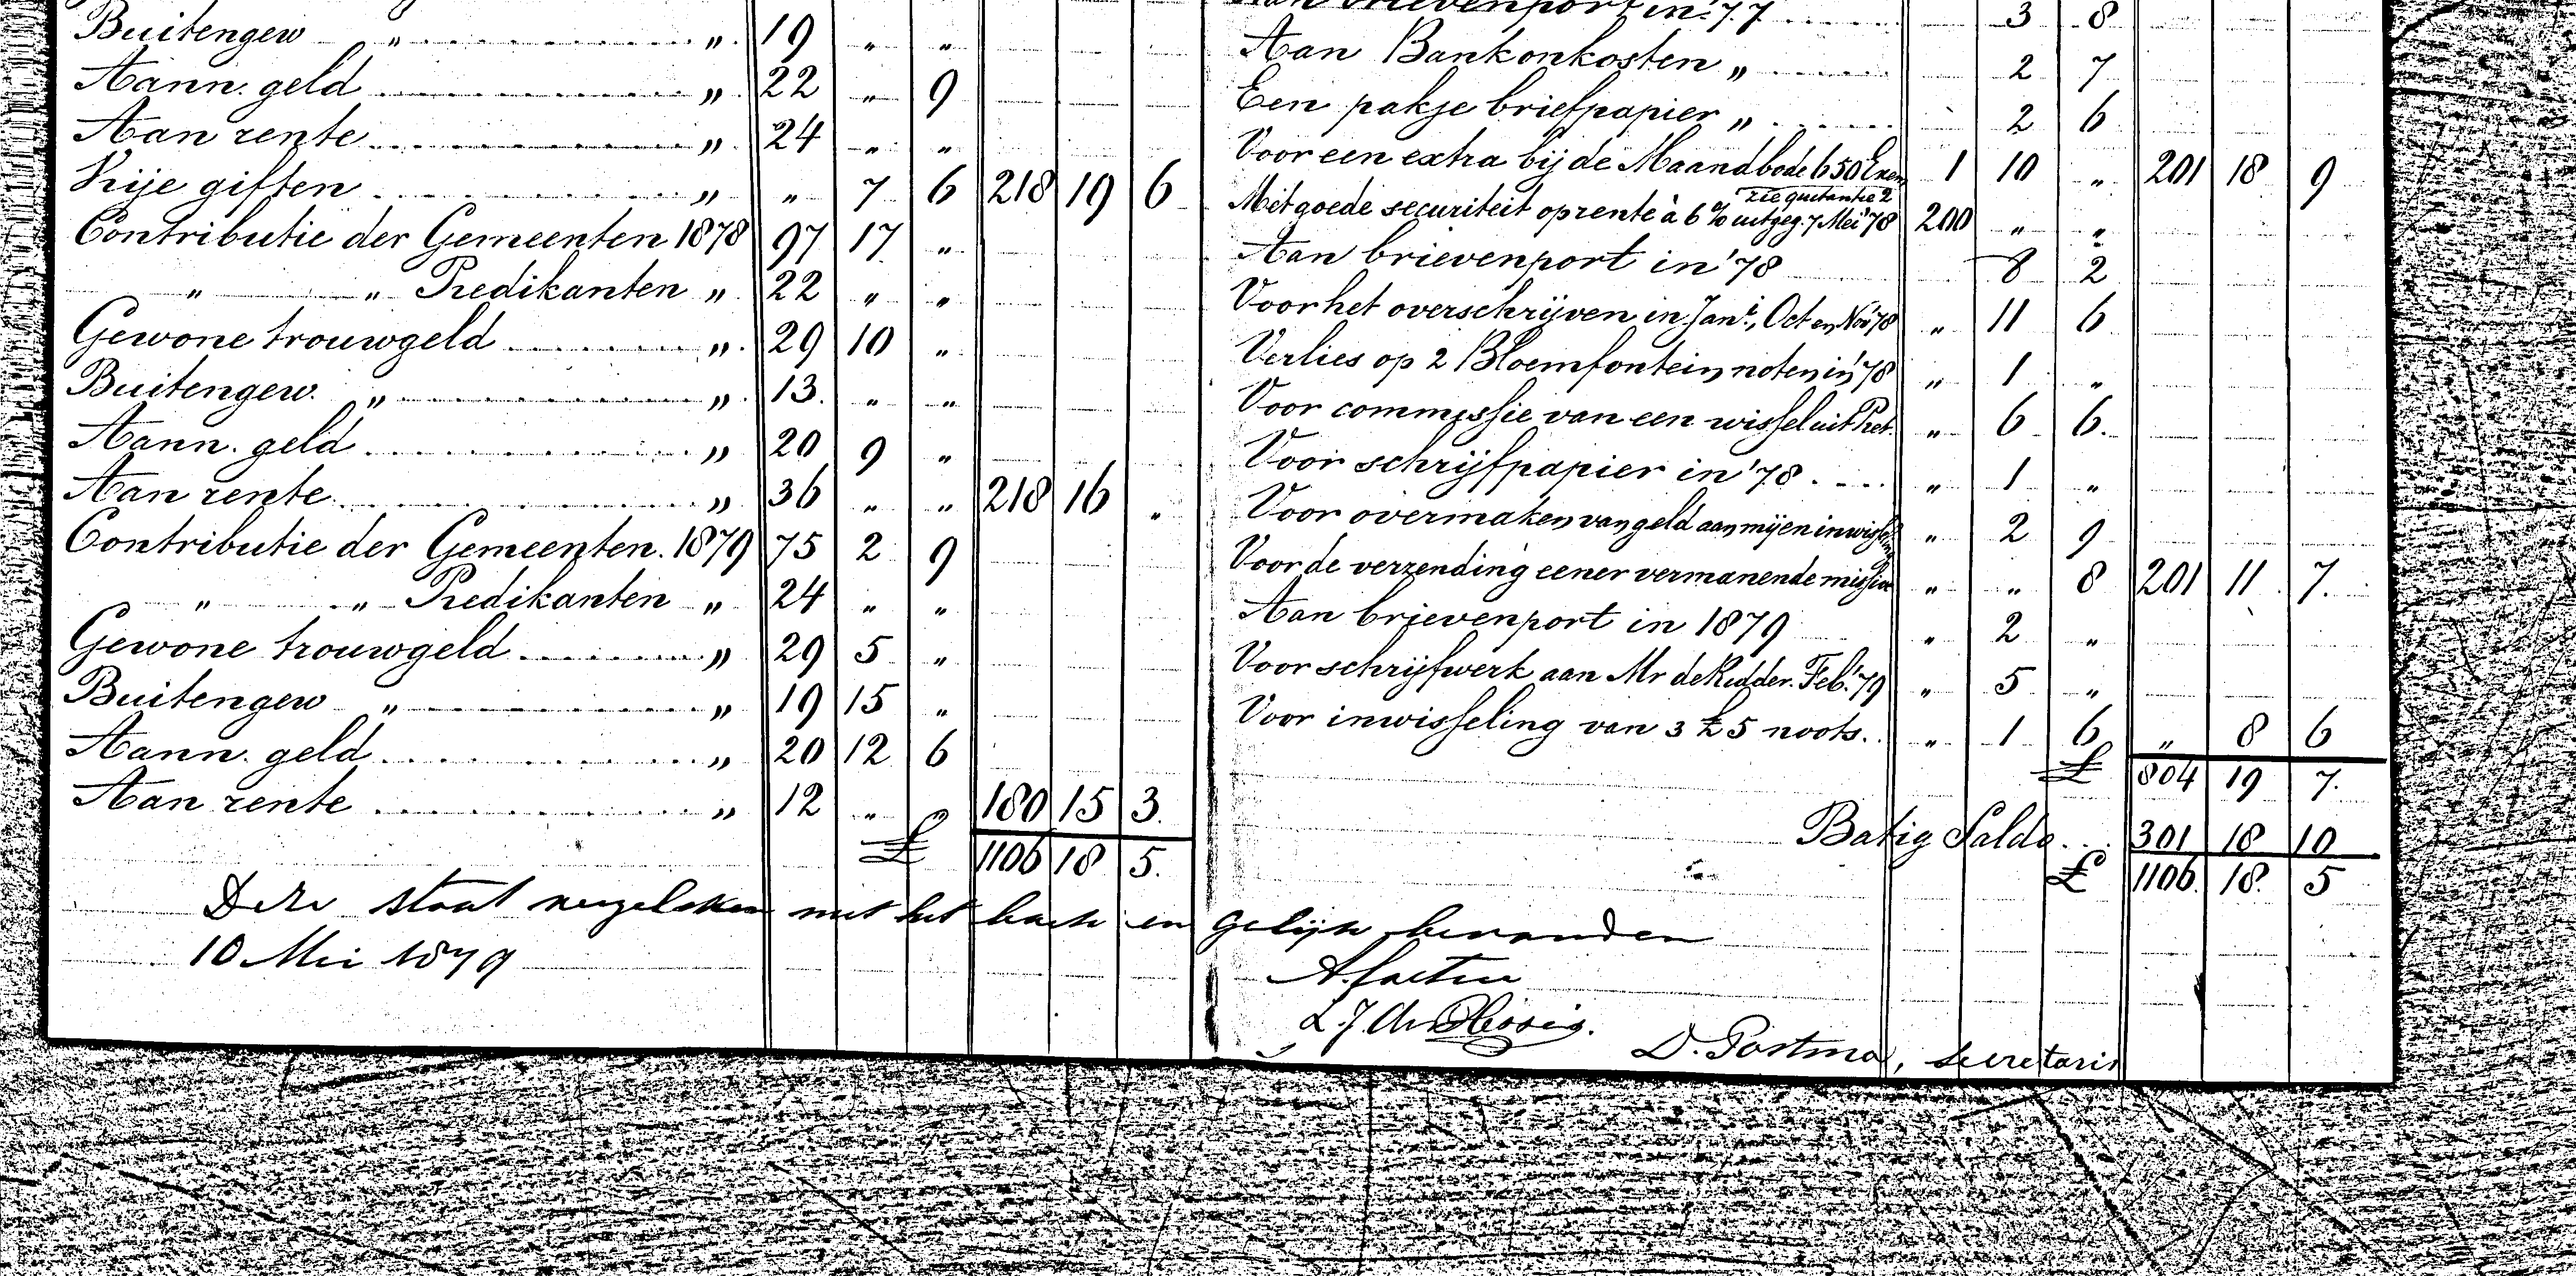 Buitengew " " 19 " "
Aann. geld " 22 " 9
Aan rente " 24 " "
Vrije giften " " 7 6 218 19 6
Contributie der Gemeenten 1878 97 17 "
" " Predikanten " 22 " "
Gewone trouwgeld " 29 10 "
Buitengew. " " 13. " "
Aann. geld " 20 9 "
Aan rente " 36 " " 218 16 "
Contributie der Gemeenten. 1879 75 2 9
" " Predikanten " 24 " "
Gewone trouwgeld " 29 5 "
Buitengew " " 19 15 "
Aann. geld " 20 12 6
Aan rente " 12 " " 180 15 3.
£ 1106 18 5.
Aan brievenport in '77 3 8
Aan Bankonkosten " 2 7
Een pakje briefpapier " 2 6
Voor een extra bij de Maandbode 650 Exem 1 10 " 201 18 9
zie quitantie 2
Met goede securiteit op rente à 6 % uitgeg. 7 Mei '78 200 " "
Aan brievenport in '78 8 2
Voor het overschrijven in Jan., Oct en Nov '78 " 11 6
Verlies op 2 Bloemfontein noten in '78 " 1 "
Voor commissie van een wissel uit Pret. " 6 6.
Voor schrijfpapier in '78 " 1 "
Voor overmaken van geld aan mij en inwissel " 2 9
Voor de verzending eener vermanende missive " " 8 201 11 7.
Aan brievenport in 1879 " 2 "
Voor schrijfwerk aan Mr de Ridder. Feb. '79 " 5 "
Voor inwisseling van 3 £5 noots. " 1 6 " 8 6
£ 804 19 7.
Batig Saldo 301 18 10
£ 1106. 18. 5
Deze staat vergeleken met het boek en gelijk bevonden
10 Mei 1879
L. J. du Plessis.
D. Postma, secretaris